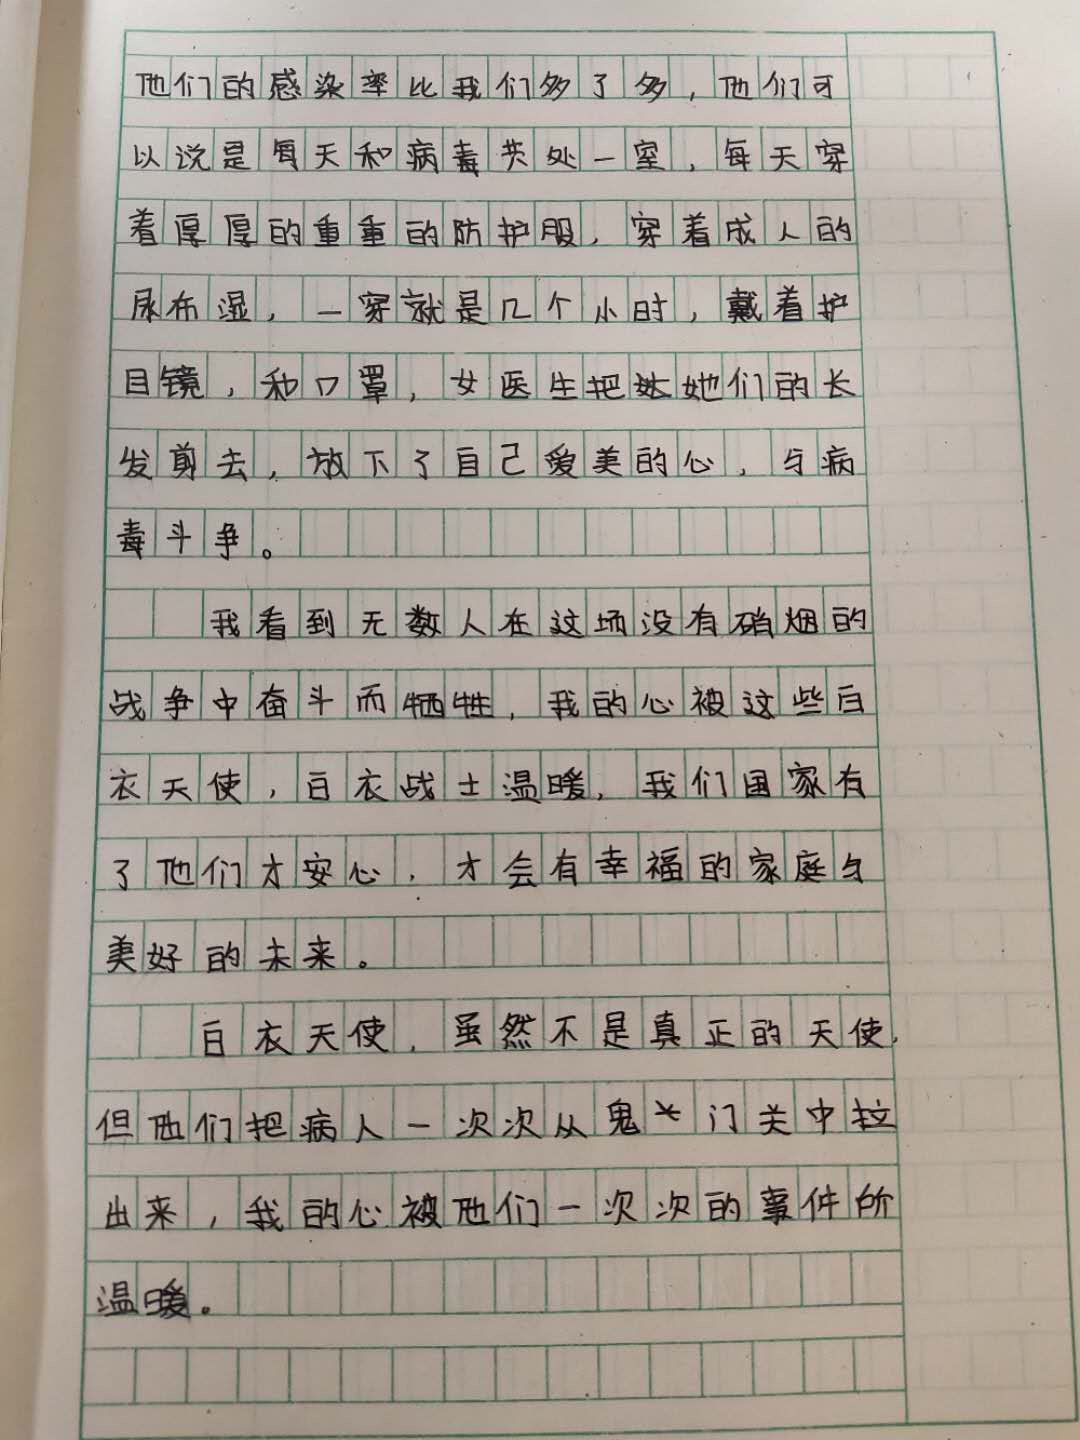 他们的感染率比我们多了多，他们可
以说是每天和病毒共处一室，每天穿
着厚厚的重重的防护服，穿着成人的
尿布湿，一穿就是几个小时，戴着护
目镜，和口罩，女医生把她们的长
发剪去，放下了自己爱美的心，与病
毒斗争。
我看到无数人在这场没有硝烟的
战争中奋斗而牺牲，我的心被这些白
衣天使，白衣战士温暖，我们国家有
了他们才安心，才会有幸福的家庭与
美好的未来。
白衣天使，虽然不是真正的天使，
但他们把病人一次次从鬼门关中拉
出来，我的心被他们一次次的事件所
温暖。